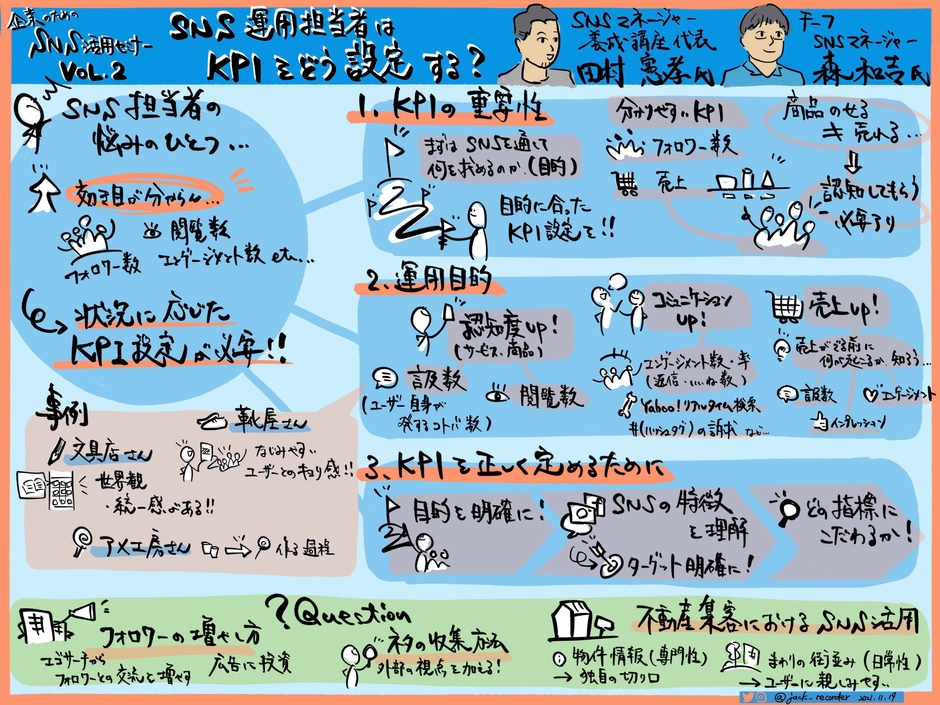 企業のための
SNS活用セミナー
VOL.2
SNS 運用担当者は
KPIをどう設定する?
SNSマネージャー
養成講座代表
田村憲孝氏
チーフ
SNSマネージャー
森和吉氏
SNS担当者の
悩みのひとつ…
効き目が分からん…
フォロワー数
閲覧数
エンゲージメント数 etc...
状況に応じた
KPI設定が必要!!
1. KPIの重要性
まずはSNSを通して
何を求めるのか(目的)
目的に合った
KPI設定を!!
分かりやすいKPI
フォロワー数
売上
商品のせる
≠ 売れる…
認知してもらう
必要アリ
2. 運用目的
認知度up!
(サービス、商品)
言及数
(ユーザー自身が
発するコトバ数)
閲覧数
コミュニケーション
UP!
エンゲージメント数・率
(返信・いいね数)
Yahoo!リアルタイム検索
#(ハッシュタグ)の訴求 など…
売上up!
売上がでる前に
何が起こるか知ろう…
言及数
エンゲージメント
インプレッション
事例
文具店さん
世界観
・統一感がある!!
靴屋さん
なじみやすい
ユーザーとのキョリ感!!
アメ工房さん
作る過程
3. KPIを正しく定めるために
目的を明確に!
SNSの特徴
を理解
ターゲット明確に!
どの指標に
こだわるか!
?Question
フォロワーの増やし方
エゴサーチから
フォロワーとの交流を増やす
広告に投資
ネタの収集方法
外部の視点を加える!
不動産集客におけるSNS活用
物件情報(専門性)
→ 独自の切り口
まわりの街並み(日常性)
→ ユーザーに親しみやすい
@jack_recorder 2021.11.19